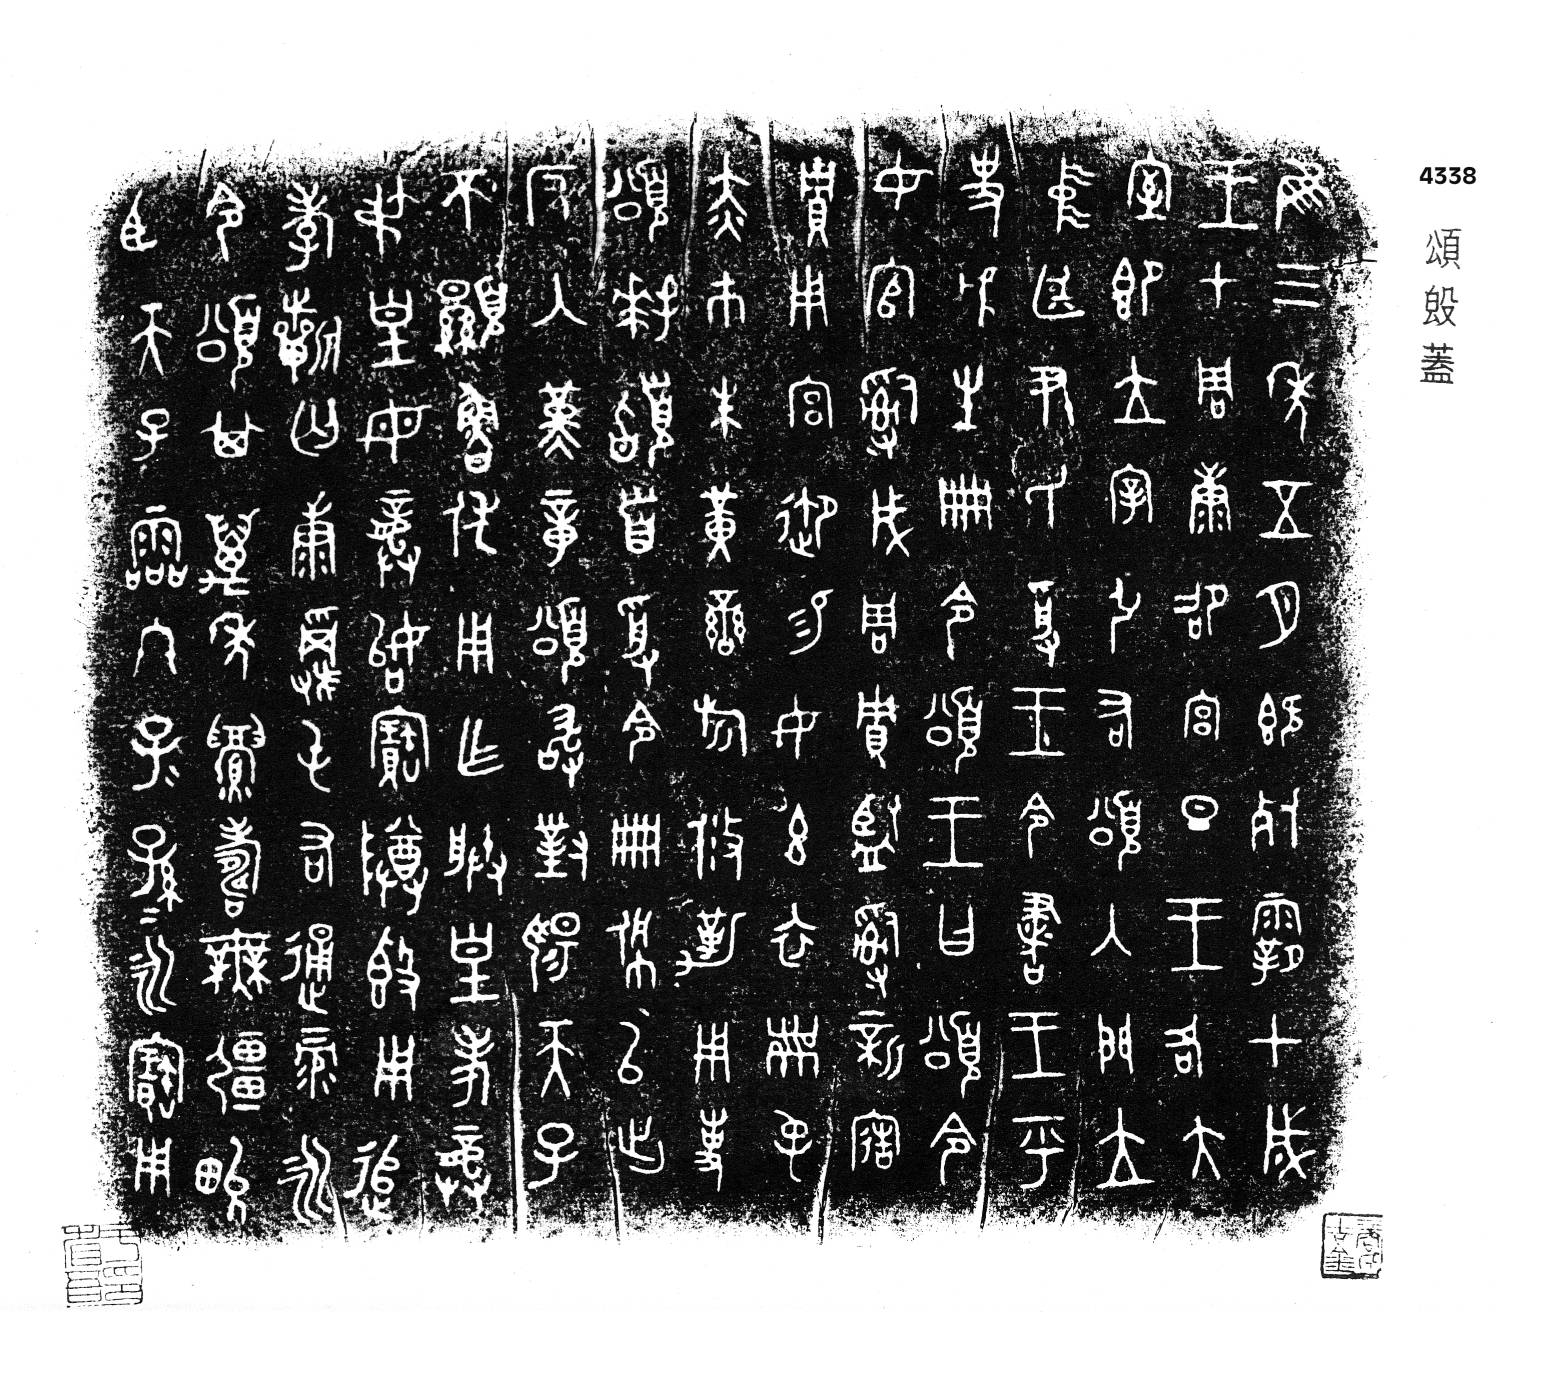 4338
頌𣪘蓋
隹三年五月既死霸甲戌
王才周康卲宮旦王各大
室即立宰引右頌入門立
中廷尹氏受王令書王乎
史虢生冊令頌王曰頌令
女官𤔲成周貯監𤔲新造
貯用宮御易女玄衣黹屯
赤巿朱黃䜌旂攸勒用事
頌拜𩒨首受令冊佩以出
反入堇章頌敢對揚天子
不顯魯休用乍朕皇考龏
弔皇母龏姒寶尊𣪘用追
孝𣄨匃康𩁹屯右通彔永
令頌其萬年眉壽無疆畯
臣天子霝冬子=孫=永寶用